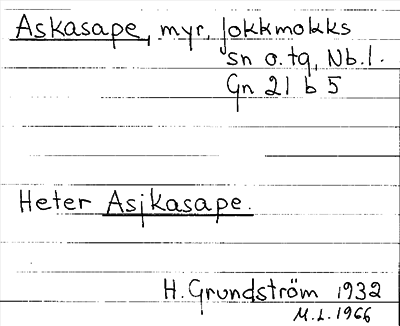 Askasape, myr, Jokkmokks
sn o. tg, Nb.l.
Gn 21 b 5
Heter Asjkasape.
H. Grundström 1932
M.L. 1966